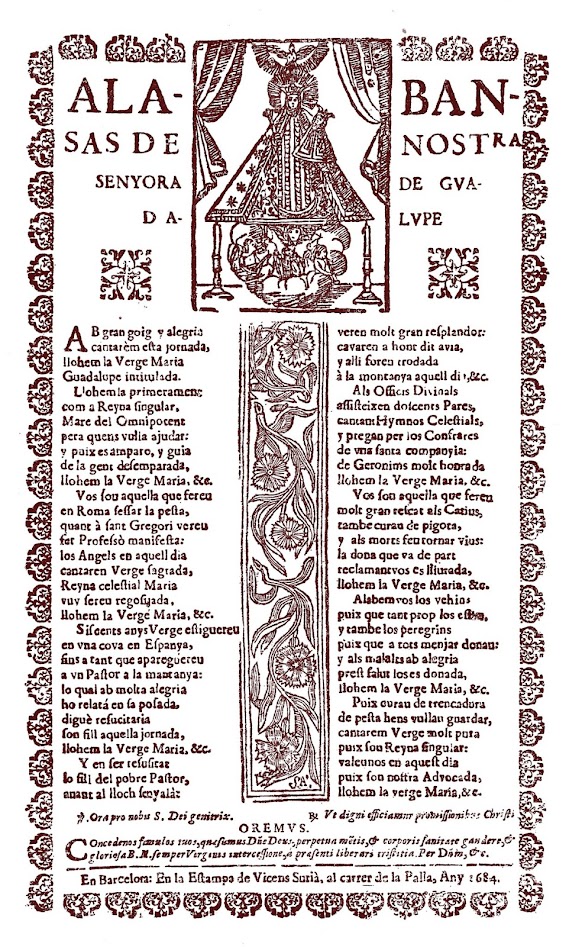 ALA- BAN-
SAS DE NOSTRA
SENYORA DE GVA-
DA- LVPE
AB gran goig y alegria
cantarèm esta jornada,
llohem la Verge Maria
Guadalupe intitulada.
Llohemla primerament
com a Reyna singular,
Mare del Omnipotent
pera quens vulla ajudar:
y puix es amparo, y guia
de la gent desemparada,
llohem la Verge Maria, &c.
Vos sou aquella que fereu
en Roma cessar la pesta,
quant à sant Gregori vereu
fer Professò manifesta:
los Angels en aquell dia
cantaren Verge sagrada,
Reyna celestial Maria
vuy sereu regosijada,
llohem la Verge Maria, &c.
Siscents anys Verge estiguereu
en vna cova en Espanya,
fins a tant que apareguereu
a vn Pastor a la mantanya:
lo qual ab molta alegria
ho relatá en sa posada,
diguè resucitaria
son fill aquella jornada,
llohem la Verge Maria, &c.
Y en ser resusitat
lo fill del pobre Pastor,
anant al lloch senyalat
veren molt gran resplandor:
cavaren a hont dit avia,
y alli foreu trobada
à la montanya aquell dia, &c.
Als Officis Divinals
assisteixen docents Pares,
cantant Hymnos Celestials,
y pregan per los Confrares
de vna santa companyia:
de Geronims molt honrada
llohem la Verge Maria, &c.
Vos sou aquella que fereu
molt gran rescat als Catius,
tambe curau de pigota,
y als morts feu tornar vius:
la dona que va de part
reclamantvos es lliurada,
llohem la Verge Maria, &c.
Alabem vos los vehins
puix que tant prop los estau,
y tambe los peregrins
puix que a tots menjar donau:
y als malalts ab alegria
prest salut los es donada,
llohem la Verge Maria, &c.
Puix curau de trencadura
de pesta hens vullau guardar,
cantarem Verge molt pura
puix sou Reyna singular:
valeunos en aquest dia
puix sou nostra Advocada,
llohem la verge Maria, &c.
SA
℣. Ora pro nobis S. Dei genitrix. ℟ Vt digni efficiamur promissionibus Christi
OREMVS.
Concede nos famulos tuos, quæsumus Dñe Deus, perpetua mẽtis, & corporis sanitate gaudere, &
gloriosa B. M. semper Virginis intercessione, à presenti liberari tristitia. Per Dñm, &c.
En Barcelona: En la Estampa de Vicens Surià, al carrer de la Palla, Any 1684.